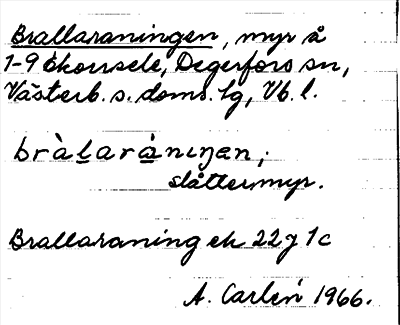 Brallaraningen, myr å
1-9 Ekorrsele, Degerfors sn,
Västerb. s. doms. lg, Vb. l.
bràḷarà̱niŋen;
slåttermyr.
Brallaraning ek 22 j 1c
A. Carlén 1966.